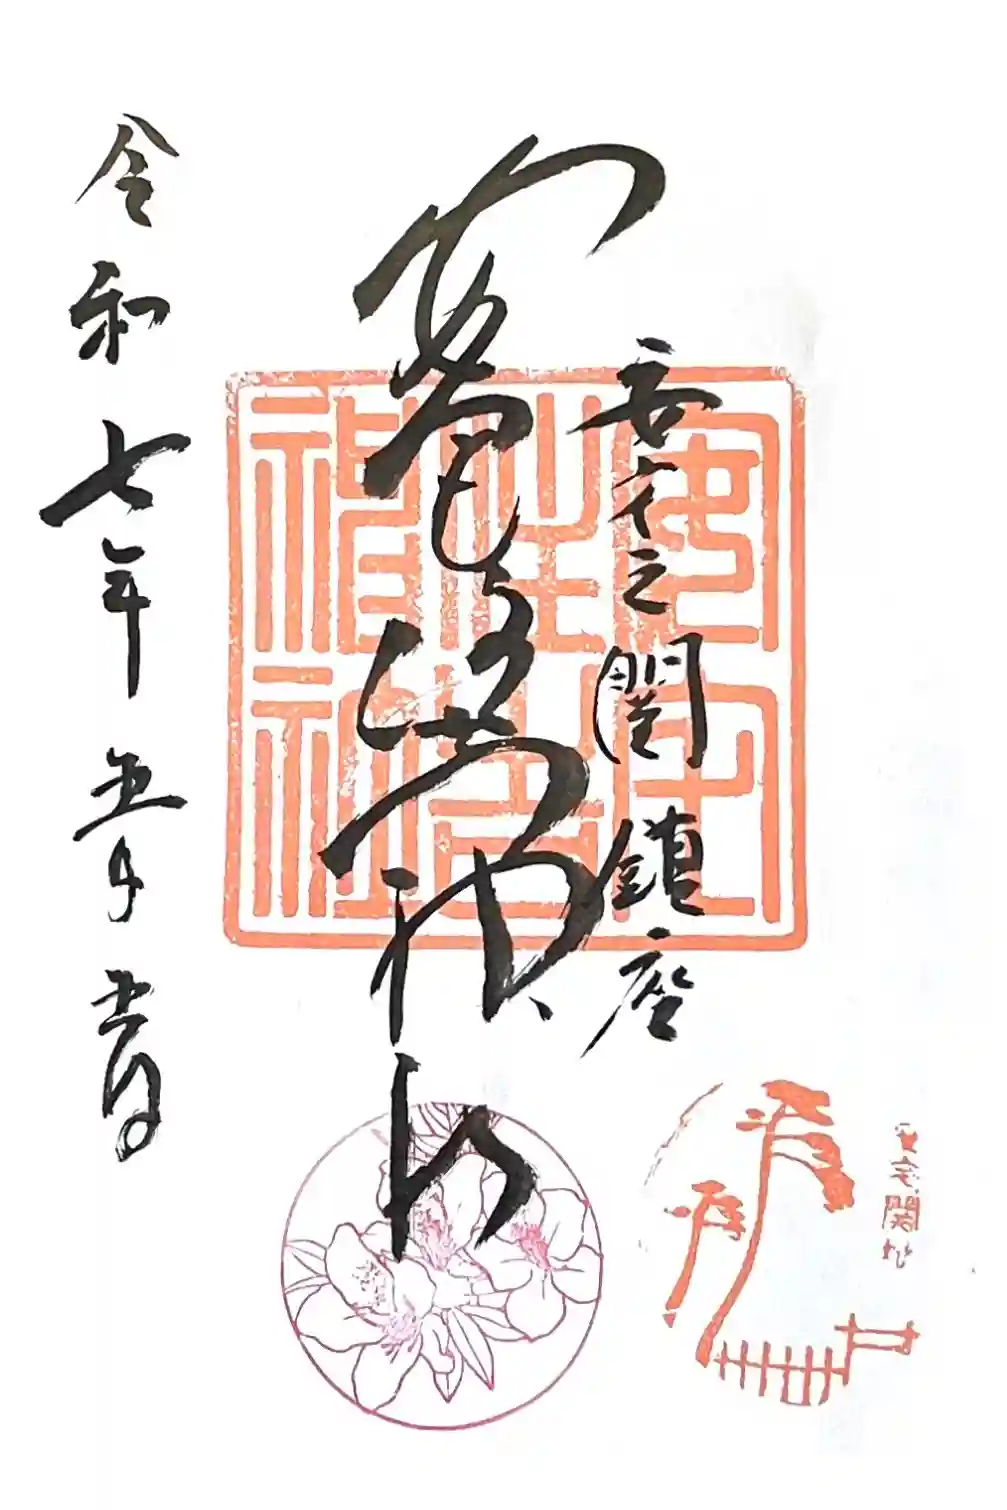 安宅之関鎮座
安宅住吉神社
令和七年五月
安宅
住吉
神社
安宅関址